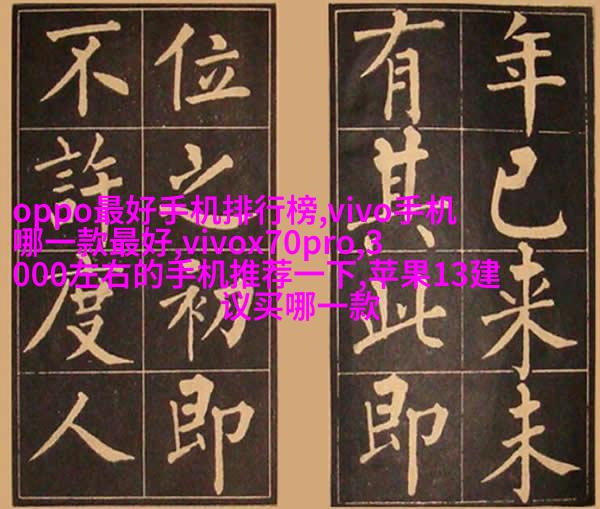 年已来未
有其此即
位之初即
不許度人
oppo最好手机排行榜,vivo手机
哪一款最好,vivox70pro,3
000左右的手机推荐一下,苹果13建
议买哪一款